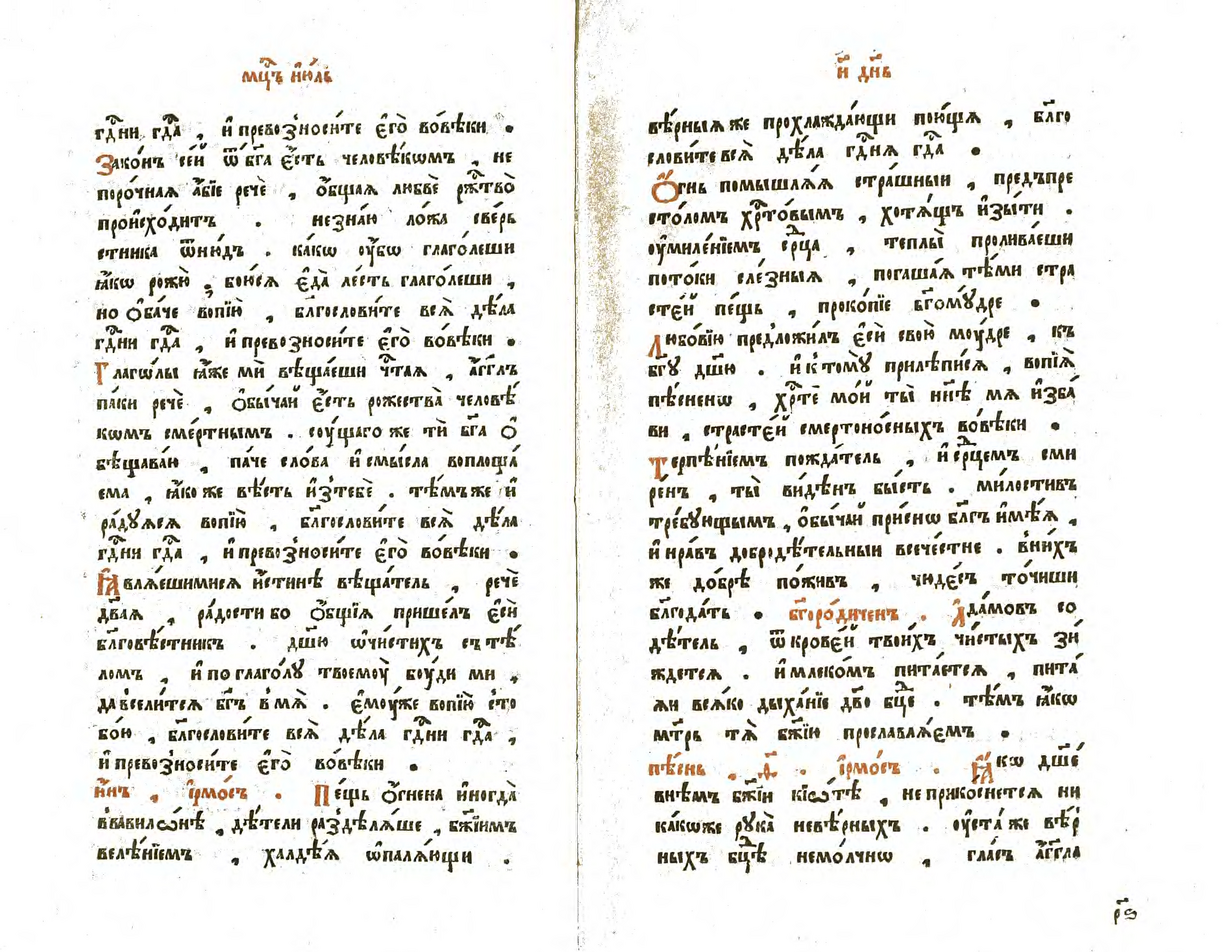 мцⷭ҇ъ і҆ю́лъ
гдⷭ҇ни гдⷭ҇а , и҆ превоꙁно́си́те є҆го̀ во́вѣки .
Зако́нъ се́й ѿ бг҃а є҆́сть человѣ́кѡмъ , не
поро́чнаѧ а҆́бїе речѐ , ѻ҆́бщаѧ любвѐ рж҃тво̀
происхо́дитъ . неꙁна́ю ло́жа све́рь
стника ѿню́дъ . ка́кѡ ᲂу҆́бѡ глаго́леши
ꙗ҆́кѡ рожю̀ , бою́сѧ є҆да̀ ле́сть глаго́леши ,
но ѻ҆ба́че вопїю̀ , бл҃гослови́те всѧ̀ дѣ́ла
гдⷭ҇ни гдⷭ҇а , и҆ превоꙁно́си́те є҆го̀ во́вѣки .
Глаго́лы ꙗ҆́же мѝ вѣща́еши чⷭ҇таѧ , а҆́гг҃лъ
па́ки речѐ , ѻ҆бы́чай є҆́сть рожества̀ человѣ́
кѡмъ сме́ртнымъ . соу́щаго же тѝ бг҃а ѻ҆
бѣщава́ю , па́че сло́ва и҆ смы́сла воплоща́
ема , ꙗ҆́ко же вѣ́сть и҆ꙁтебѐ . тѣ́мъ же и҆
ра́дꙋѧсѧ вопїю̀ , бл҃гослови́те всѧ̀ дѣ́ла
гдⷭ҇ни гдⷭ҇а , и҆ превоꙁно́си́те є҆го̀ во́вѣки .
Ꙗ҆влѧ́ешимисѧ и҆́стинѣ вѣща́тель , речѐ
дв҃аѧ , ра́дости бо ѻ҆́бщїѧ прише́лъ є҆сѝ
бл҃говѣ́стникъ . дш҃ю ѡ҆чи́стихъ съ тѣ́
ломъ , и҆ по глаго́лꙋ твоемоу̀ боу́ди ми ,
да всели́тсѧ бг҃ъ в мѧ̀ . є҆моу́же вопїю̀ сто
бо́ю , бл҃гослови́те всѧ̀ дѣ́ла гдⷭ҇ни гдⷭ҇а ,
и҆ превоꙁно́си́те є҆го̀ во́вѣки .
и҆́нъ , і҆рмо́съ . Пе́щь ѻ҆́гнена и҆ногда̀
в вавилѡ́нѣ , дѣ́тели раꙁдѣлѧ́ше , бж҃їимъ
велѣ́нїемъ , халдѣ́ѧ ѡ҆палѧ́ющи .
и҃ дн҃ь
вѣ́рныѧ же прохлажда́ющи пою́щѧ , бл҃го
слови́те всѧ̀ дѣ́ла гдⷭ҇нѧ гдⷭ҇а .
Ѻ҆́гнь помышлѧ́ѧ стра́шныи , предъпре
сто́ломъ хрⷭ҇то́вымъ , хотѧ́щъ и҆ꙁы́ти .
ᲂу҆миле́нїемъ срⷣца , теплы̀ пролива́еши
пото́ки сле́ꙁныѧ , погаша́ѧ тѣ́ми стра
сте́й пе́щь , проко́пїе бг҃омꙋ́дре .
Любо́вїю предложи́лъ є҆сѝ свою̀ моу́дре , къ
бг҃ꙋ дш҃ю . и҆ к томꙋ̀ прилѣпи́сѧ , вопїѧ̀
пѣ́сненѡ , хрⷭ҇тѐ мо́й ты̀ нн҃ѣ мѧ и҆ꙁба́
ви , страсте́й смертоно́сныхъ во́вѣки .
Терпѣ́нїемъ пожда́тель , и҆ срⷣцемъ сми
ре́нъ , ты̀ ви́дѣнъ бы́сть . ми́лостивъ
тре́бꙋющымъ , ѻ҆бы́чай при́снѡ бл҃гъ и҆мѣ́ѧ ,
и҆ нра́въ добродѣ́тельныи всече́стне . в ни́хъ
же до́брѣ пожи́въ , чюде́съ точи́ши
бл҃года́ть . бг҃оро́диченъ . А҆да́мовъ со
дѣ́тель , ѿ крове́й твои́хъ чи́стыхъ ꙁи́
ждетсѧ . и҆ млеко́мъ пита́етсѧ , пита́
ѧи всѧ́ко дыха́нїе дв҃о бцⷣе . тѣ́мъ ꙗ҆́кѡ
мт҃рь тѧ̀ бж҃їю прославлѧ́емъ .
пѣ́снь , ѳ҃ . і҆рмо́съ . Ꙗ҆́кѡ дш҃е́
внѣмъ бж҃їи кїѡ́тѣ , не прико́снетсѧ ни
ка́кѡже рꙋка̀ невѣ́рныхъ . ᲂу҆ста́ же вѣ́р
ныхъ бцⷣѣ немо́лчнѡ , гла́съ а҆́гг҃ла
рѕ҃